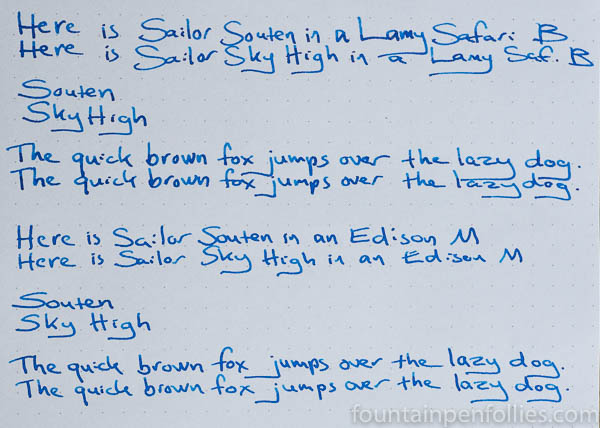 Here is Sailor Souten in a Lamy Safari B
Here is Sailor Sky High in a Lamy Saf. B
Souten
Sky High
The quick brown fox jumps over the lazy dog.
The quick brown fox jumps over the lazy dog.
Here is Sailor Souten in an Edison M
Here is Sailor Sky High in an Edison M
Souten
Sky High
The quick brown fox jumps over the lazy dog.
The quick brown fox jumps over the lazy dog.
fountainpenfollies.com